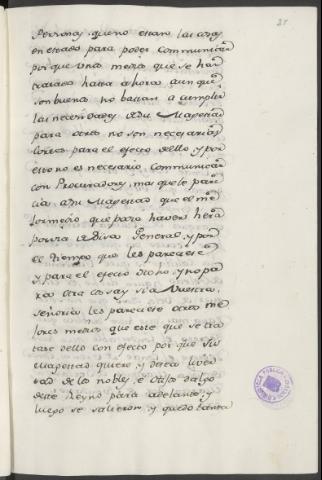 Personas, que no estan las cosas
en estado para poder communicar
porque unos medios que se han
tratado hasta ahora, aunque
son buenos no bastan a cumplir
las necesidades de su Magestad
para otros no son necesarias
Cortes para el efecto dello, y por
esto no es necesario communicar
con Procuradores, mas que le pare
cia a su Magestad que el me
jor medio que podia haver hera
por via de Sisa General, y por
el tiempo que les pareciere
y para el efecto dicho, y no pa
ra otra cosa, y si a Vuestra
Señoria les pareciere otros me
jores medios que este que se tra
tase dello con efecto por que Su
Magestad quiere, y desea liber
tad de los nobles, e Hijos dalgo
deste Reyno para adelante, y
luego se salieron, y quedo tanta